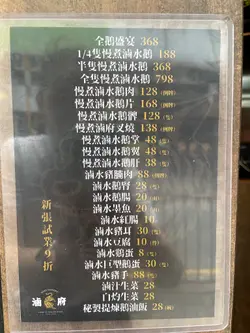 全鵝盛宴 368
1/4隻慢煮滷水鵝 188
半隻慢煮滷水鵝 368
全隻慢煮滷水鵝 798
慢煮滷水鵝肉 128 (例牌)
慢煮滷水鵝片 168 (例牌)
慢煮滷水鵝髀 128 (隻)
慢煮滷府叉燒 138 (例牌)
慢煮滷水鵝掌 48 (隻)
慢煮滷水鵝翼 48 (隻)
慢煮滷水鵝肝 38 (隻)
滷水豬腩肉 88 (例牌)
滷水鵝腎 28 (隻)
滷水鵝腸 20
滷水墨魚 20
滷水紅腸 10
滷水豬耳 30
滷水豆腐 10
滷水鵝蛋 8
滷水巨型鵝蛋 30
滷水豬手 88
滷汁生菜 28
白灼生菜 28
秘製提煉鵝油飯 28
新張試業9折
滷府